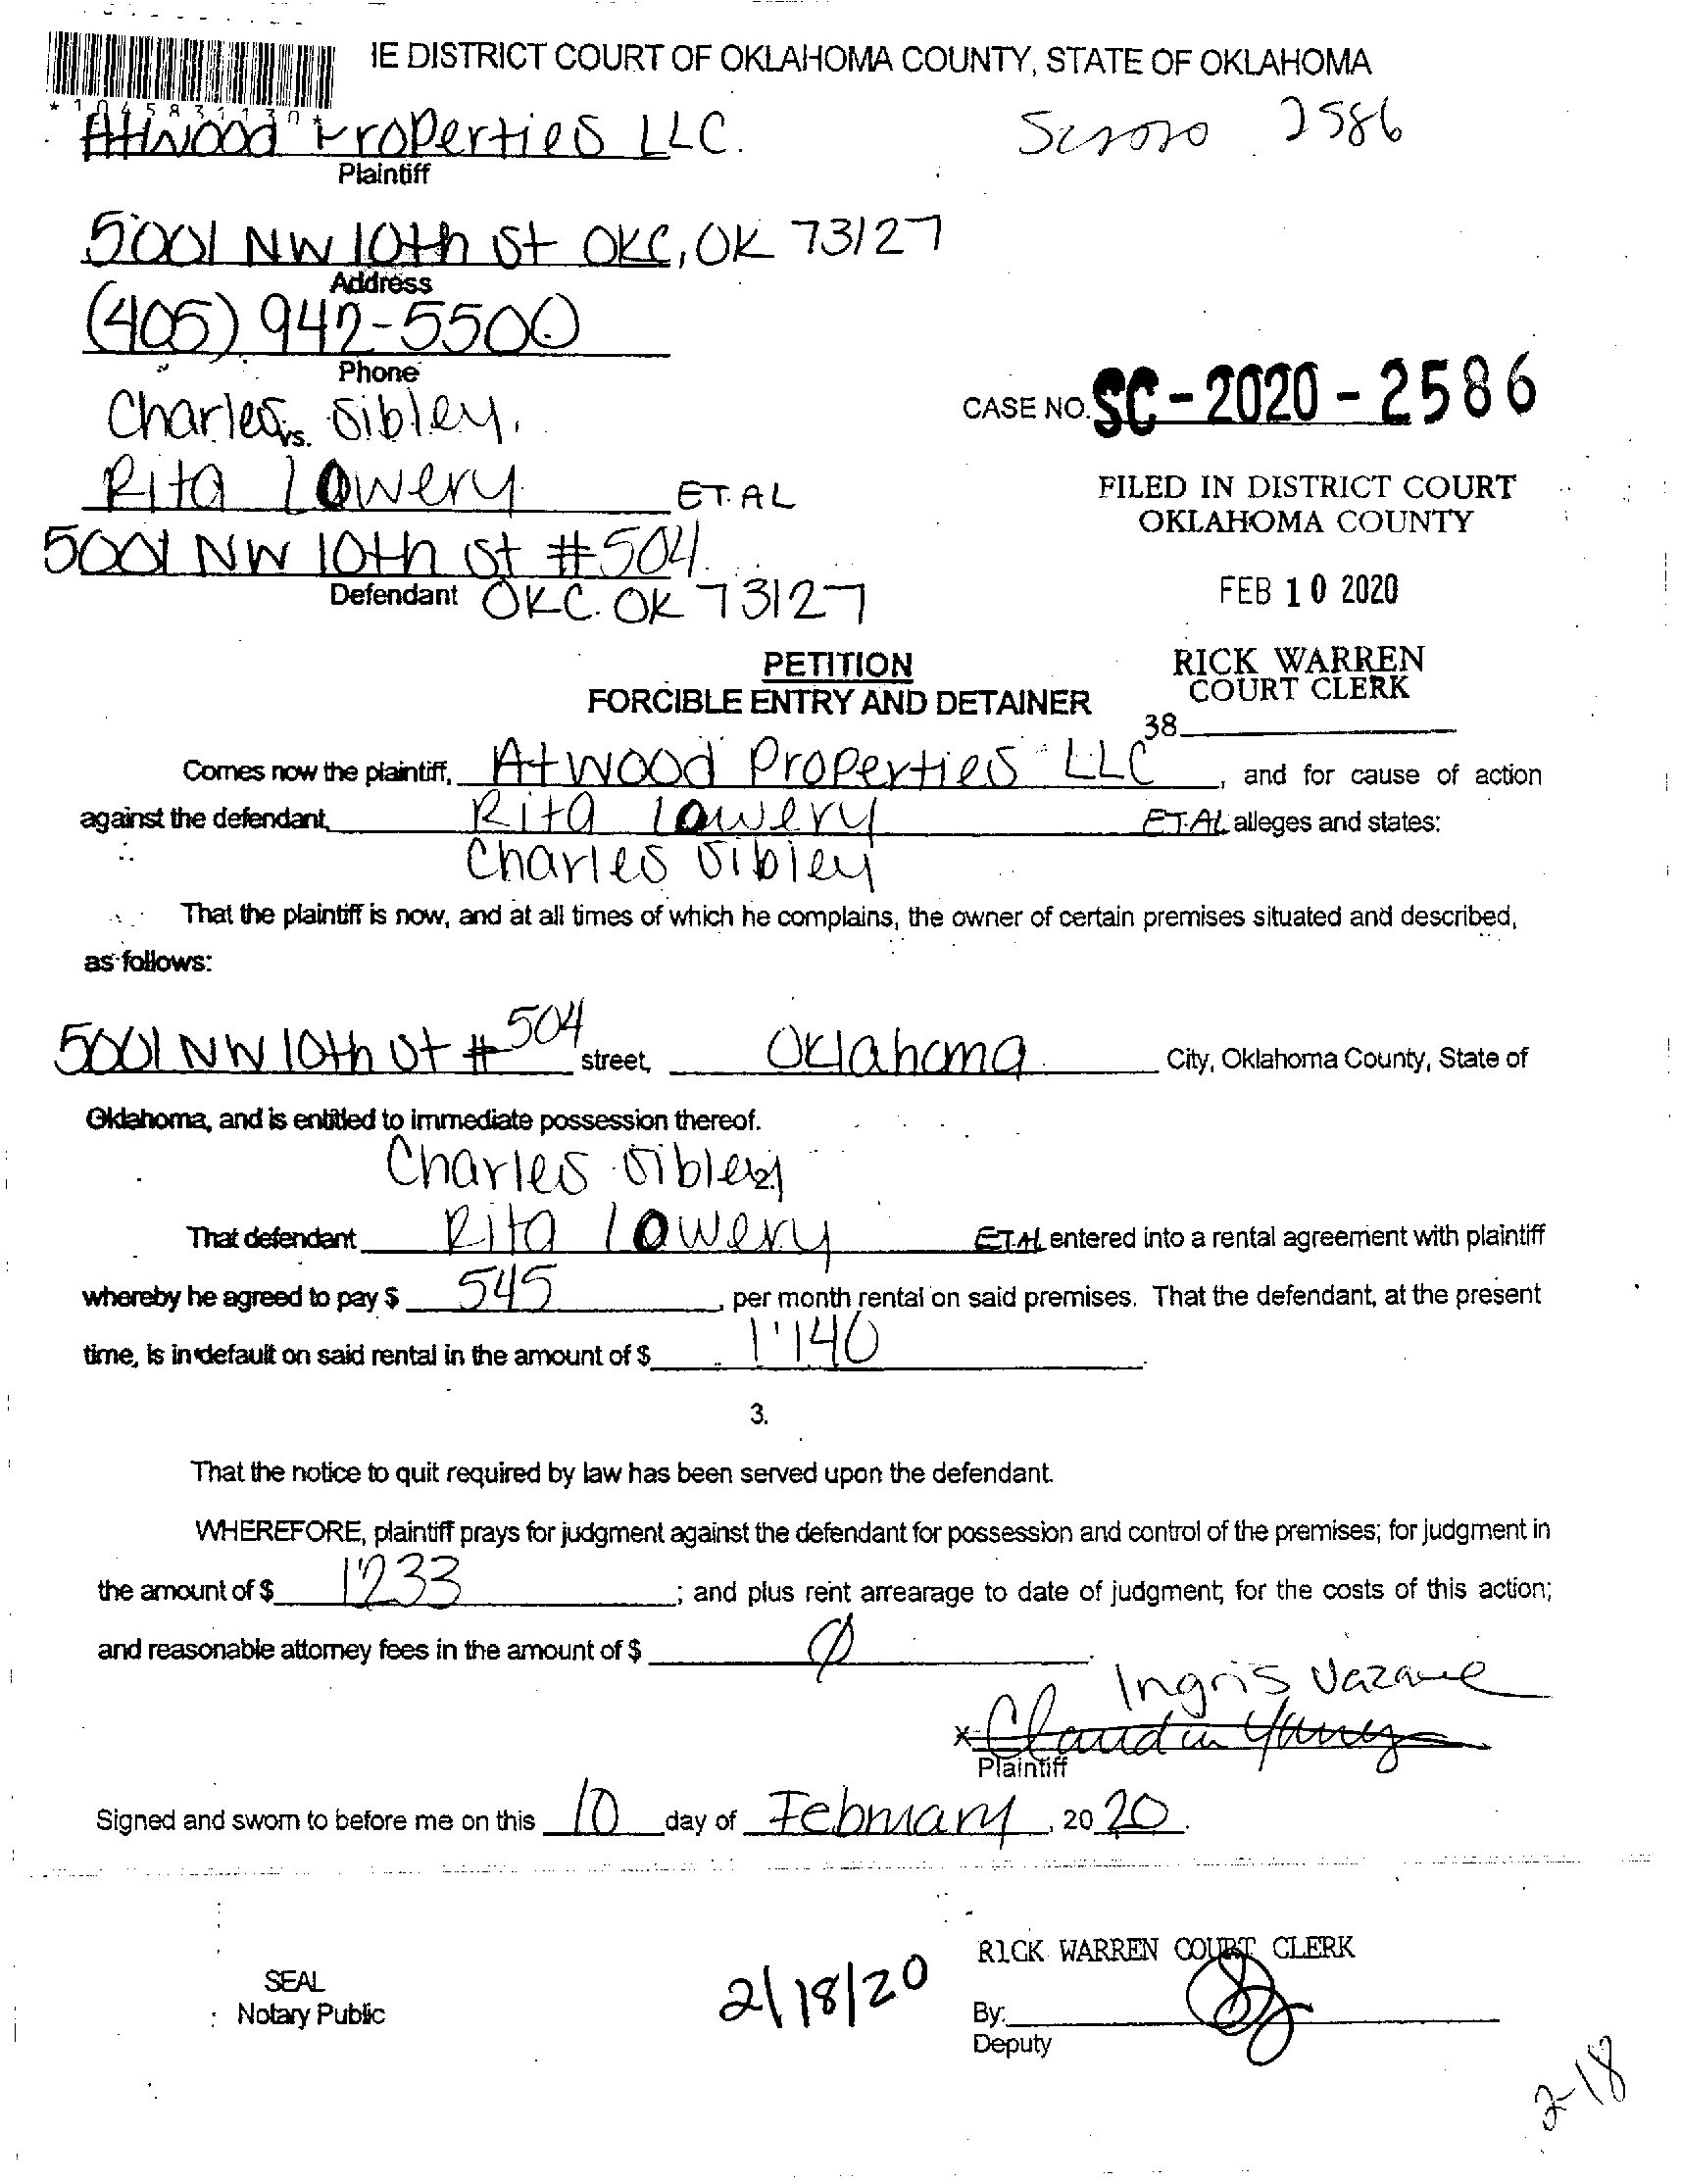 IE DISTRICT COURT OF OKLAHOMA COUNTY, STATE OF OKLAHOMA
Atwood Properties LLC.
2586
Plaintiff
5001 NW 10th St OKC, OK 73127
Address
(405) 942-5500
Phone
Charles Sibley,
vs.
CASE NO. SC-2020-2586
Rita Lowery ET. AL
FILED IN DISTRICT COURT
OKLAHOMA COUNTY
5001 NW 10th St #504
Defendant OKC. OK 73127
FEB 10 2020
PETITION
RICK WARREN
COURT CLERK
FORCIBLE ENTRY AND DETAINER
38
Comes now the plaintiff, Atwood Properties LLC, and for cause of action
against the defendant, Rita Lowery ET.AL alleges and states:
Charles Sibley
That the plaintiff is now, and at all times of which he complains, the owner of certain premises situated and described,
as follows:
5001 NW 10th St # 504 street, Oklahoma City, Oklahoma County, State of
Oklahoma, and is entitled to immediate possession thereof.
Charles Sibley
2.
That defendant Rita Lowery ET.AL entered into a rental agreement with plaintiff
whereby he agreed to pay $ 545, per month rental on said premises. That the defendant, at the present
time, is in default on said rental in the amount of $ 1'140
3.
That the notice to quit required by law has been served upon the defendant.
WHEREFORE, plaintiff prays for judgment against the defendant for possession and control of the premises; for judgment in
the amount of $ 1'233; and plus rent arrearage to date of judgment, for the costs of this action;
and reasonable attorney fees in the amount of $ Ø.
Ingris
x Claudia
Plaintiff
Signed and sworn to before me on this 10 day of February, 20 20.
RICK WARREN COURT CLERK
SEAL
Notary Public
2/18/20
By:
Deputy
2-18